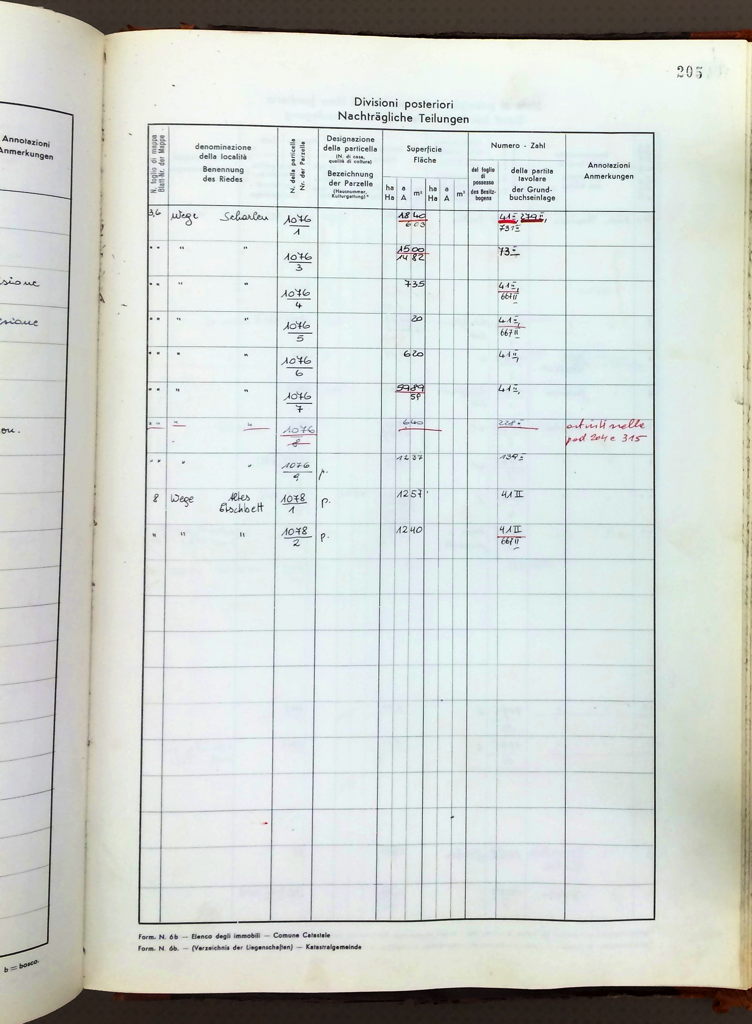 Annotazioni
Anmerkungen
205
Divisioni posteriori
Nachträgliche Teilungen
N. foglio di mappa
Blatt-Nr. der Mappe
denominazione
della località
Benennung
des Riedes
N. della particella
Nr. der Parzelle
Designazione
della particella
(N. di casa,
qualità di cultura)
Bezeichnung
der Parzelle
(Hausnummer,
Kulturgattung)
Superficie
Fläche
ha a m² ha a m²
Ha A Ha A
Numero - Zahl
del foglio
di
possesso
des Besitz-
bogens
della partita
tavolare
der Grund-
buchseinlage
Annotazioni
Anmerkungen
3,6 Wege 1076/1 1840 41II
603 731II
" " " " 1076/3 1500 73II
1482
" " " " 1076/4 735 41II
667II
" " " " 1076/5 20 41II
667II
" " " " 1076/6 620 41II
" " " " 1076/7 5989 41II
" " " " 1076/8 640
pad 204 e 315
" " " " 1076/9 p. 1237
8 Wege Altes Etschbett 1078/1 p. 1257 41II
" " " 1078/2 p. 1240 41II
667II
Form. N. 6b — Elenco degli immobili — Comune Catastale
Form. N. 6b. — (Verzeichnis der Liegenschaften) — Katastralgemeinde
b = bosco.